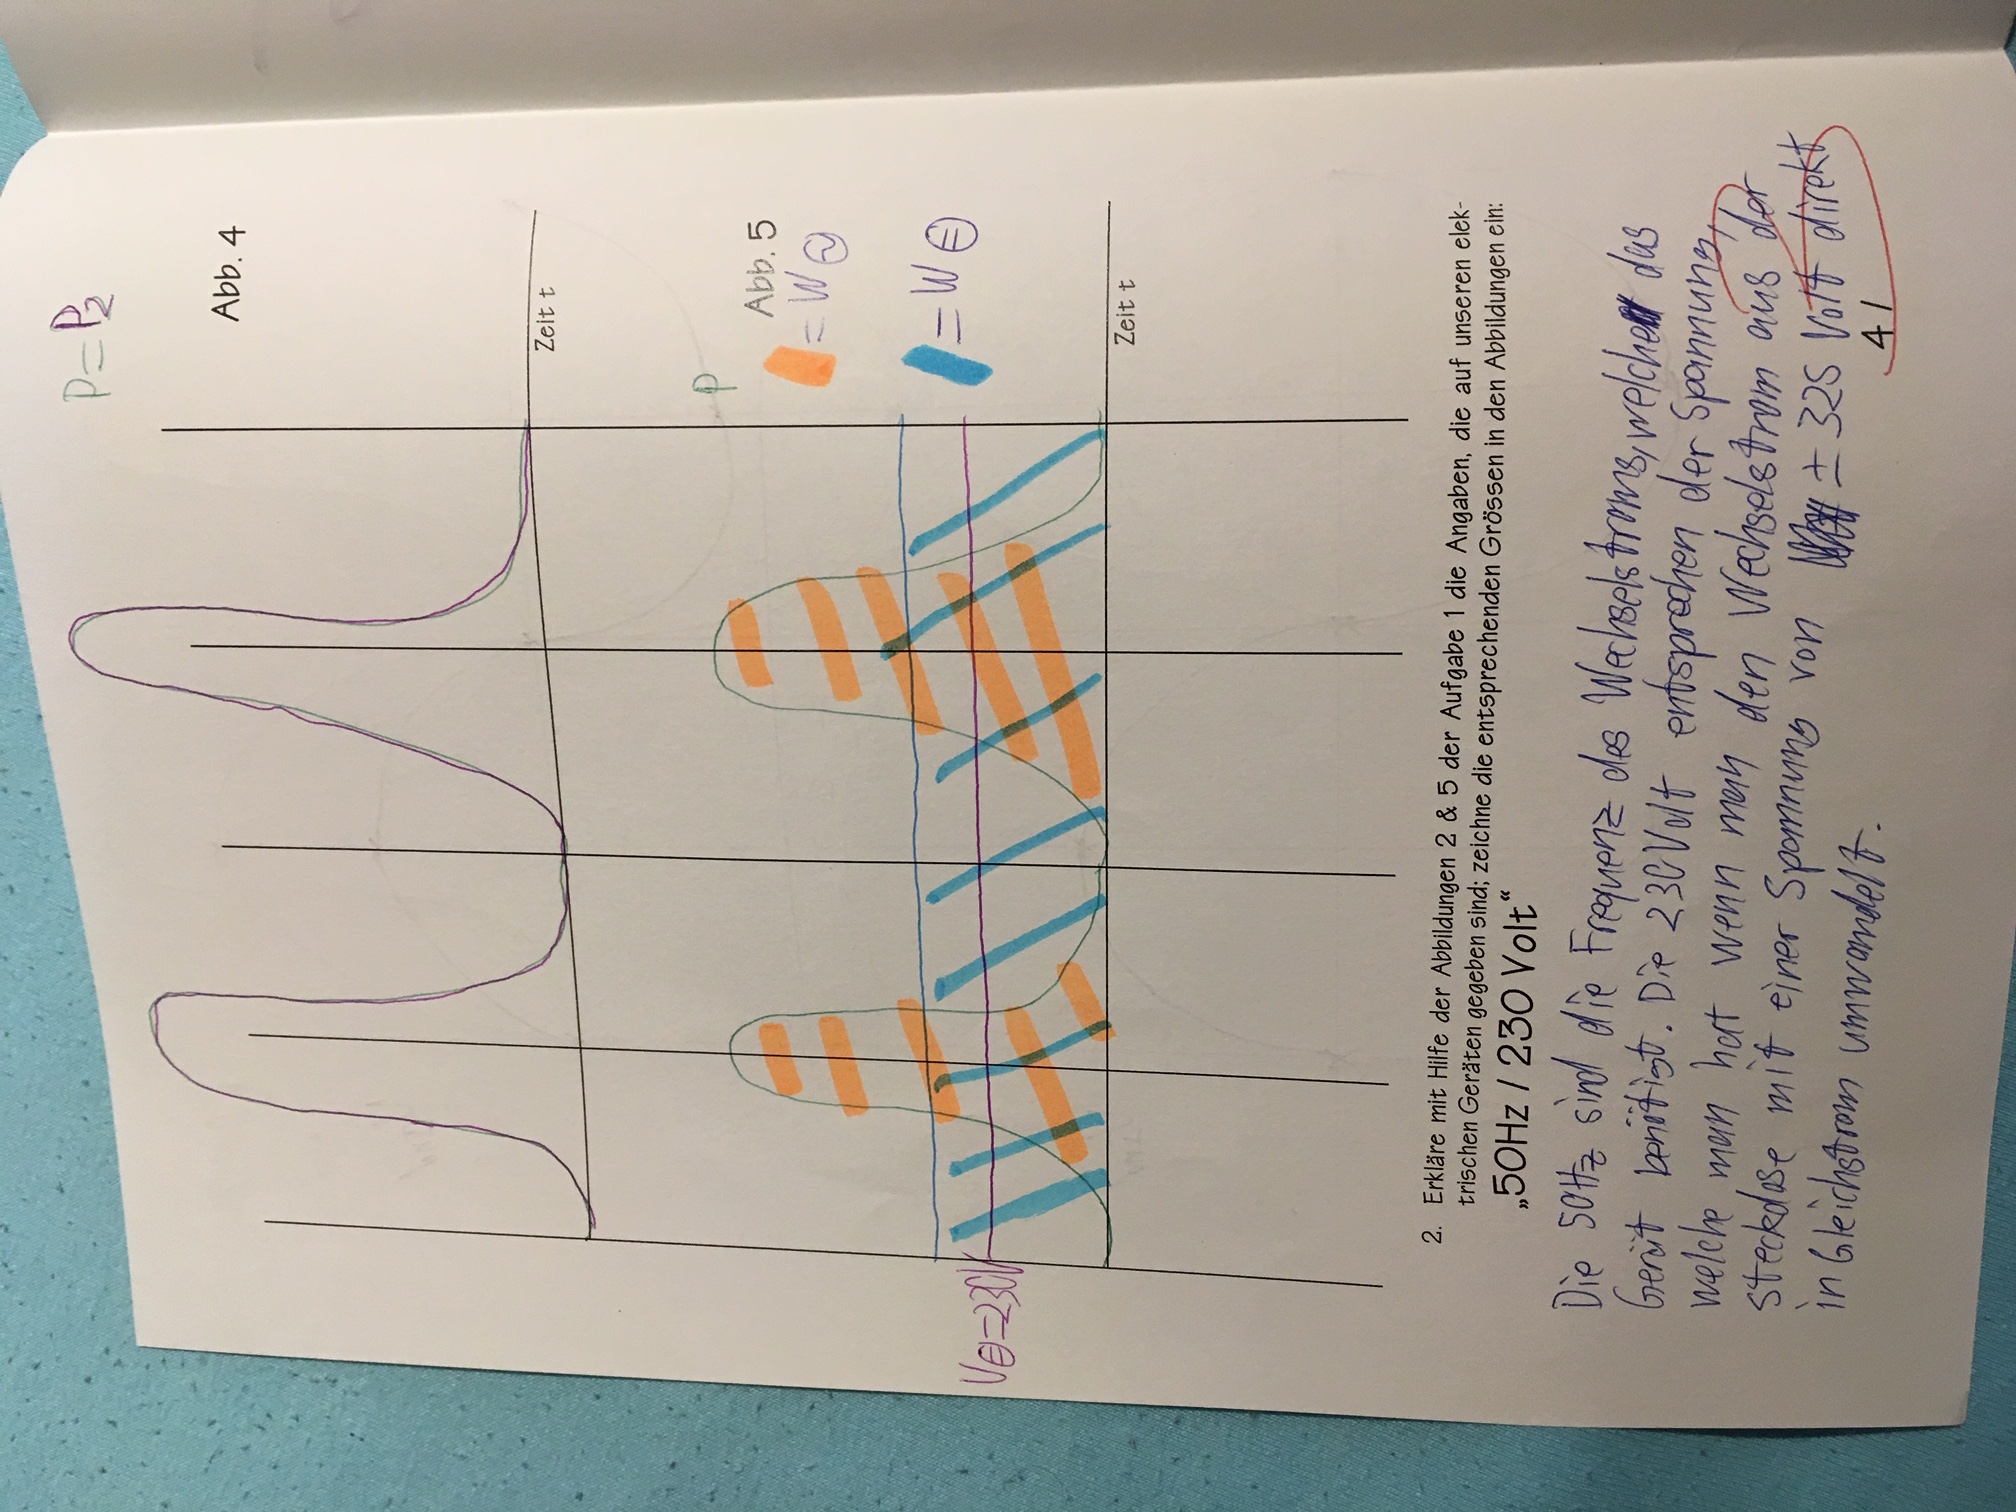 P=P2
Abb. 4
Zeit t
P
Abb. 5
= W ~
U= =230V
= W =
Zeit t
2. Erkläre mit Hilfe der Abbildungen 2 & 5 der Aufgabe 1 die Angaben, die auf unseren elek-
trischen Geräten gegeben sind; zeichne die entsprechenden Grössen in den Abbildungen ein:
„50Hz / 230 Volt“
Die 50Hz sind die Frequenz des Wechselstroms, welche das
Gerät benötigt. Die 230 Volt entsprechen der Spannung,
welche man hat wenn man den Wechselstrom aus der
steckdose mit einer Spannung von ± 325 Volt direkt
in Gleichstrom umwandelt.
4 /
2